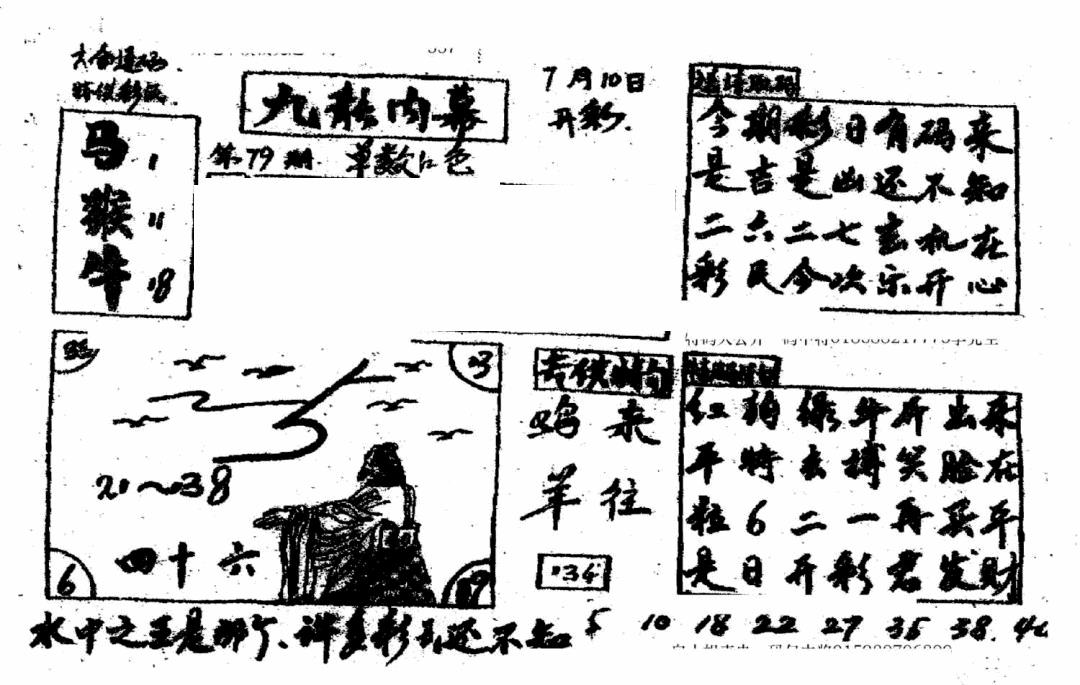 九龙内幕
7月10日
开彩.
第79期 单数红色
马 1
猴 11
牛 18
今期彩日有码来
是吉是凶还不知
二六二七玄机在
彩民今次乐开心
23
21~38
四十六
6
19
鸡来
羊往
34
红狗绿牛齐出来
平特去搏笑脸在
6二一再买平
是日开彩君发财
水中之王是那个、许多彩民还不知
5 10 18 22 27 35 38.